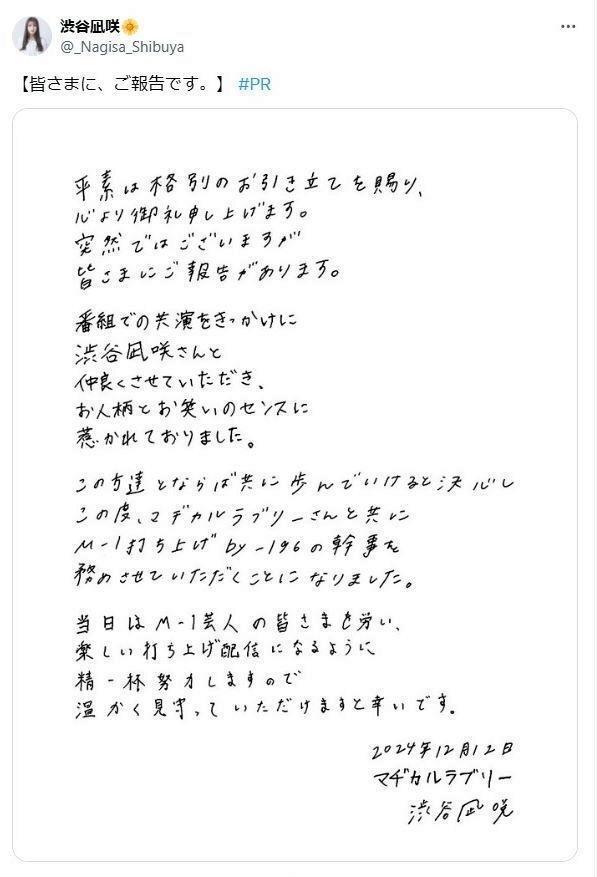 渋谷凪咲🌼
@_Nagisa_Shibuya
【皆さまに、ご報告です。】 #PR
平素は格別のお引き立てを賜り、
心より御礼申し上げます。
突然ではございますが
皆さまにご報告があります。
番組での共演をきっかけに
渋谷凪咲さんと
仲良くさせていただき、
お人柄とお笑いのセンスに
惹かれておりました。
この方達とならば共に歩んでいけると決心し
この度、マヂカルラブリーさんと共に
M-1打ち上げby-196の幹事を
務めさせていただくことになりました。
当日はM-1芸人の皆さまを労い、
楽しい打ち上げ配信になるように
精一杯努力しますので
温かく見守っていただけますと幸いです。
2024年12月12日
マヂカルラブリー
渋谷凪咲